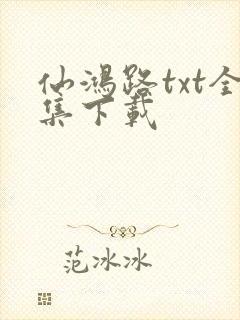 仙鸿路txt全
集下载
范冰冰